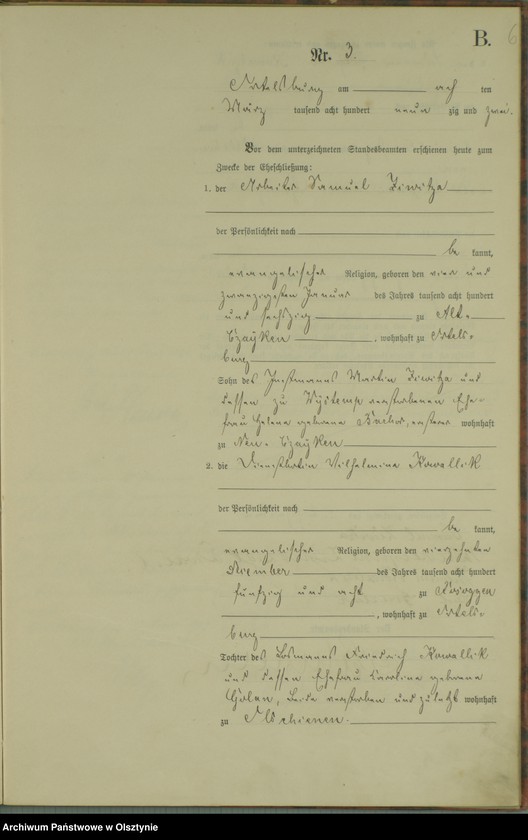 B.
6
Nr. 3.
Ortelsburg am acht ten
März tausend acht hundert neun zig und zwei.
Vor dem unterzeichneten Standesbeamten erschienen heute zum
Zwecke der Eheschließung:
1. der Arbeiter Samuel Ziwitza
der Persönlichkeit nach
be kannt,
evangelischer Religion, geboren den vier und
zwanzigsten Januar des Jahres tausend acht hundert
und sechszig zu Alt-
Czayken, wohnhaft zu Ortels-
burg
Sohn des Instmanns Martin Ziwitza und
dessen zu verstorbenen Ehe-
frau Helene geborene, ersterer wohnhaft
zu Neu-Czayken
2. die Wilhelmine Kowallik
der Persönlichkeit nach
be kannt,
evangelischer Religion, geboren den vierzehnten
des Jahres tausend acht hundert
fünfzig und acht zu
, wohnhaft zu Ortels-
burg
Tochter des Losmanns Friedrich Kowallik
und dessen Ehefrau Caroline geborene
beide verstorben und zuletzt wohnhaft
zu
Archiwum Państwowe w Olsztynie